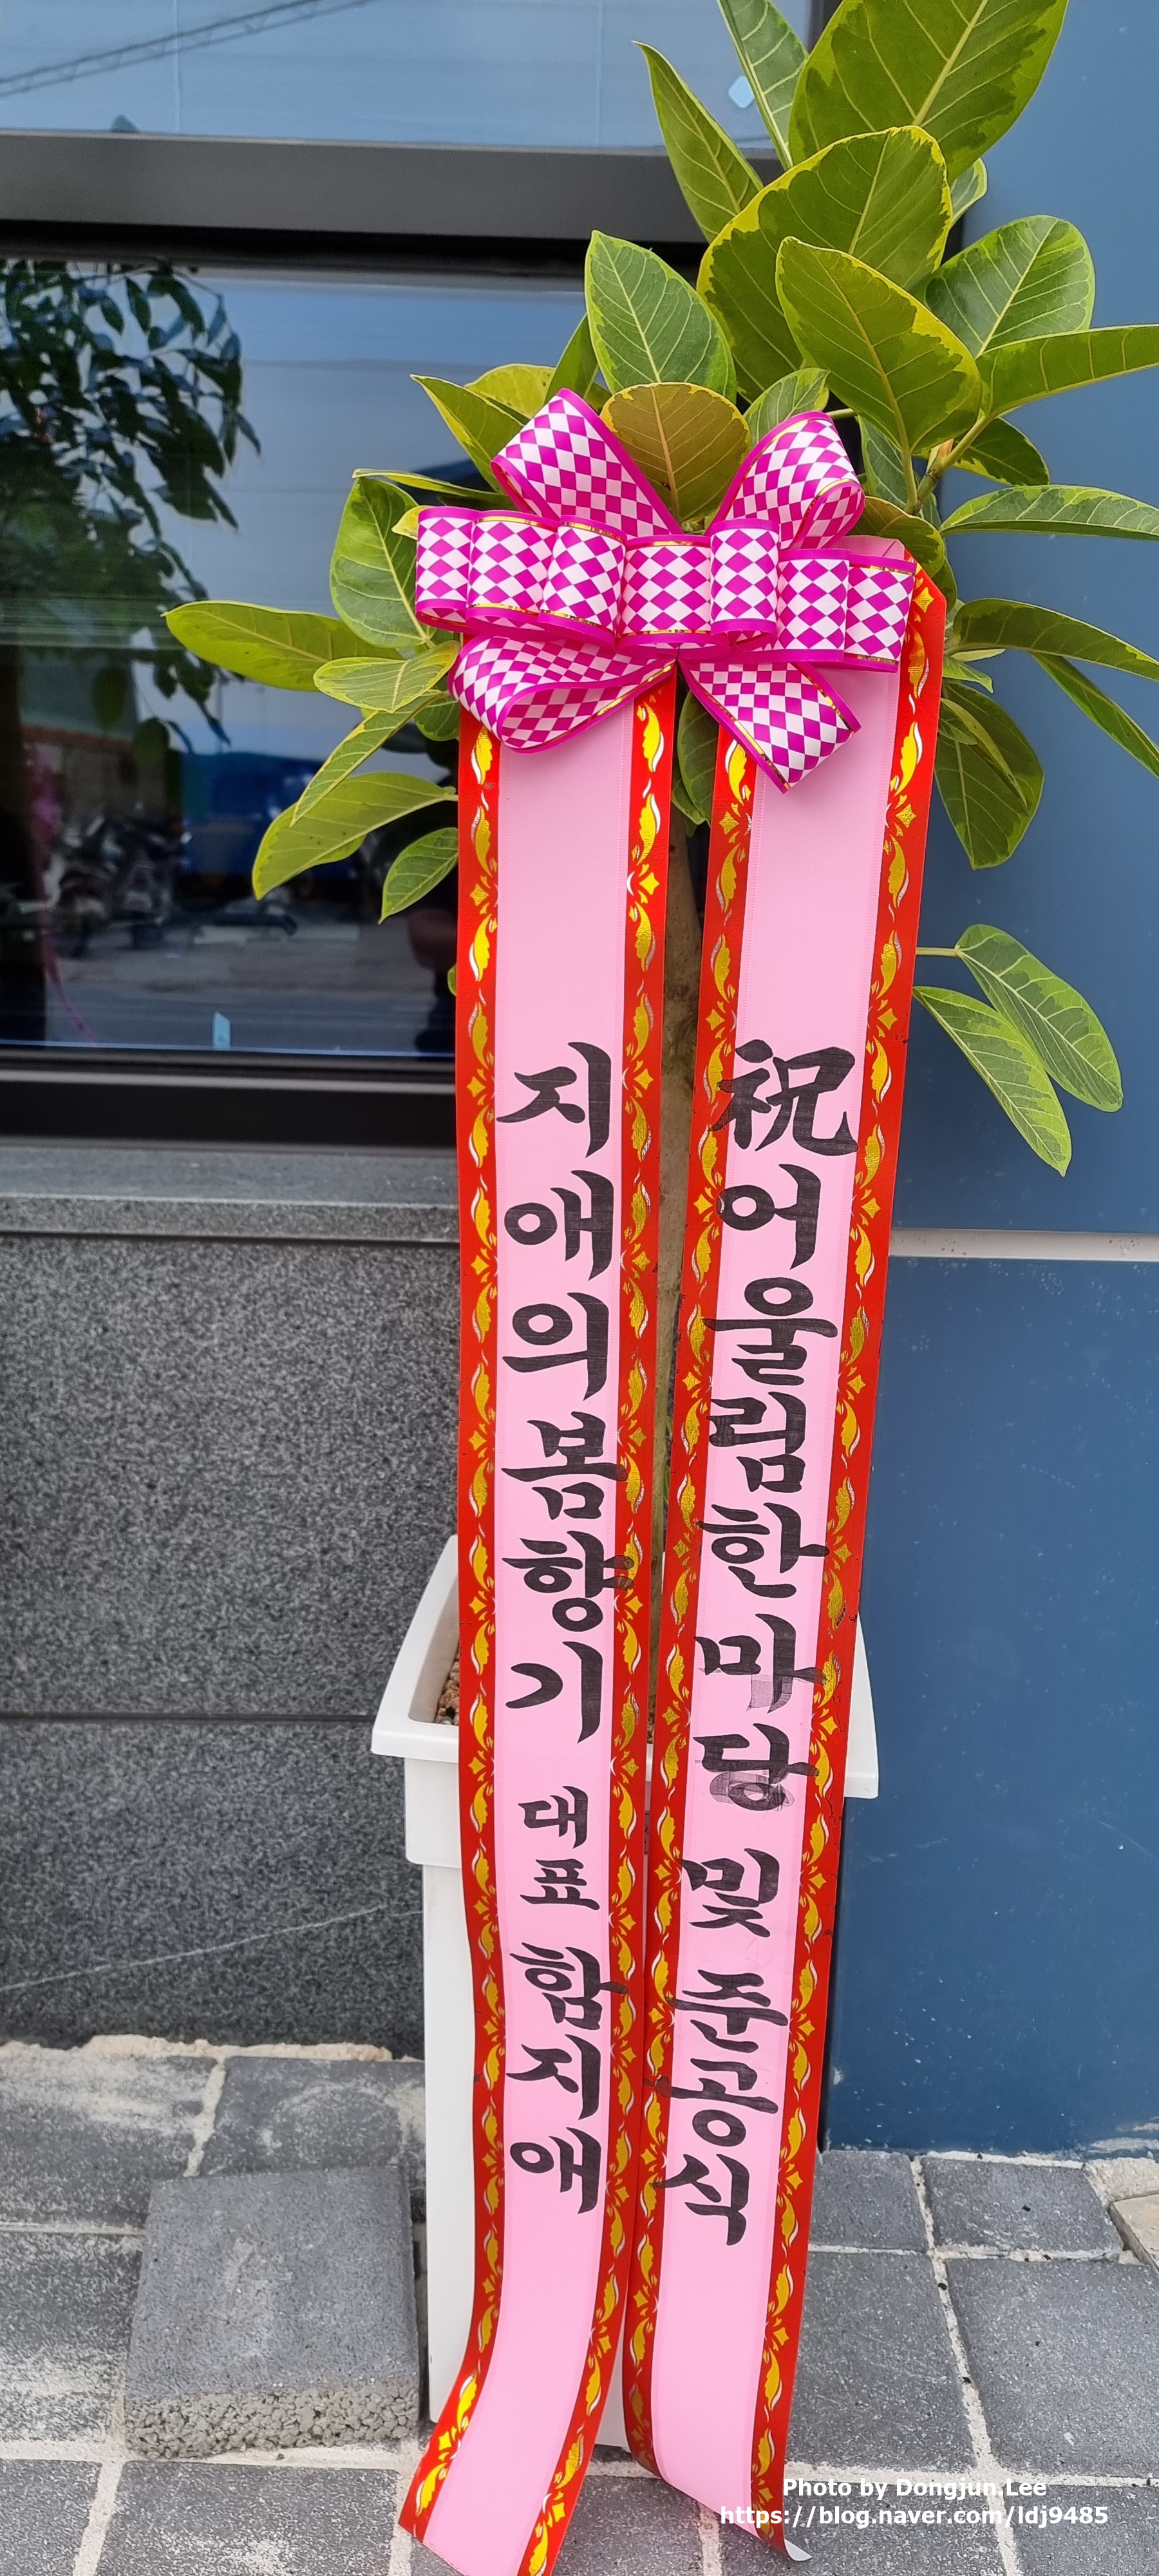 祝 어울림한마당 및 준공식
지애의봄향기 대표 함지애
Photo by Dongjun.Lee
https://blog.naver.com/ldj9485